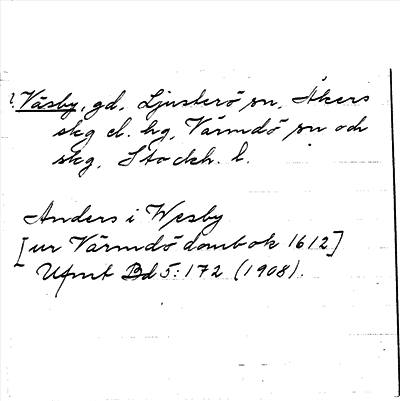 ? Väsby, gd, Ljusterö sn, Åkers
skg el. hg, Värmdö sn och
skg, Stockh. l.
Anders i Wesby
[ur Värmdö dombok 1612]
Ufmt Bd 5:172 (1908).